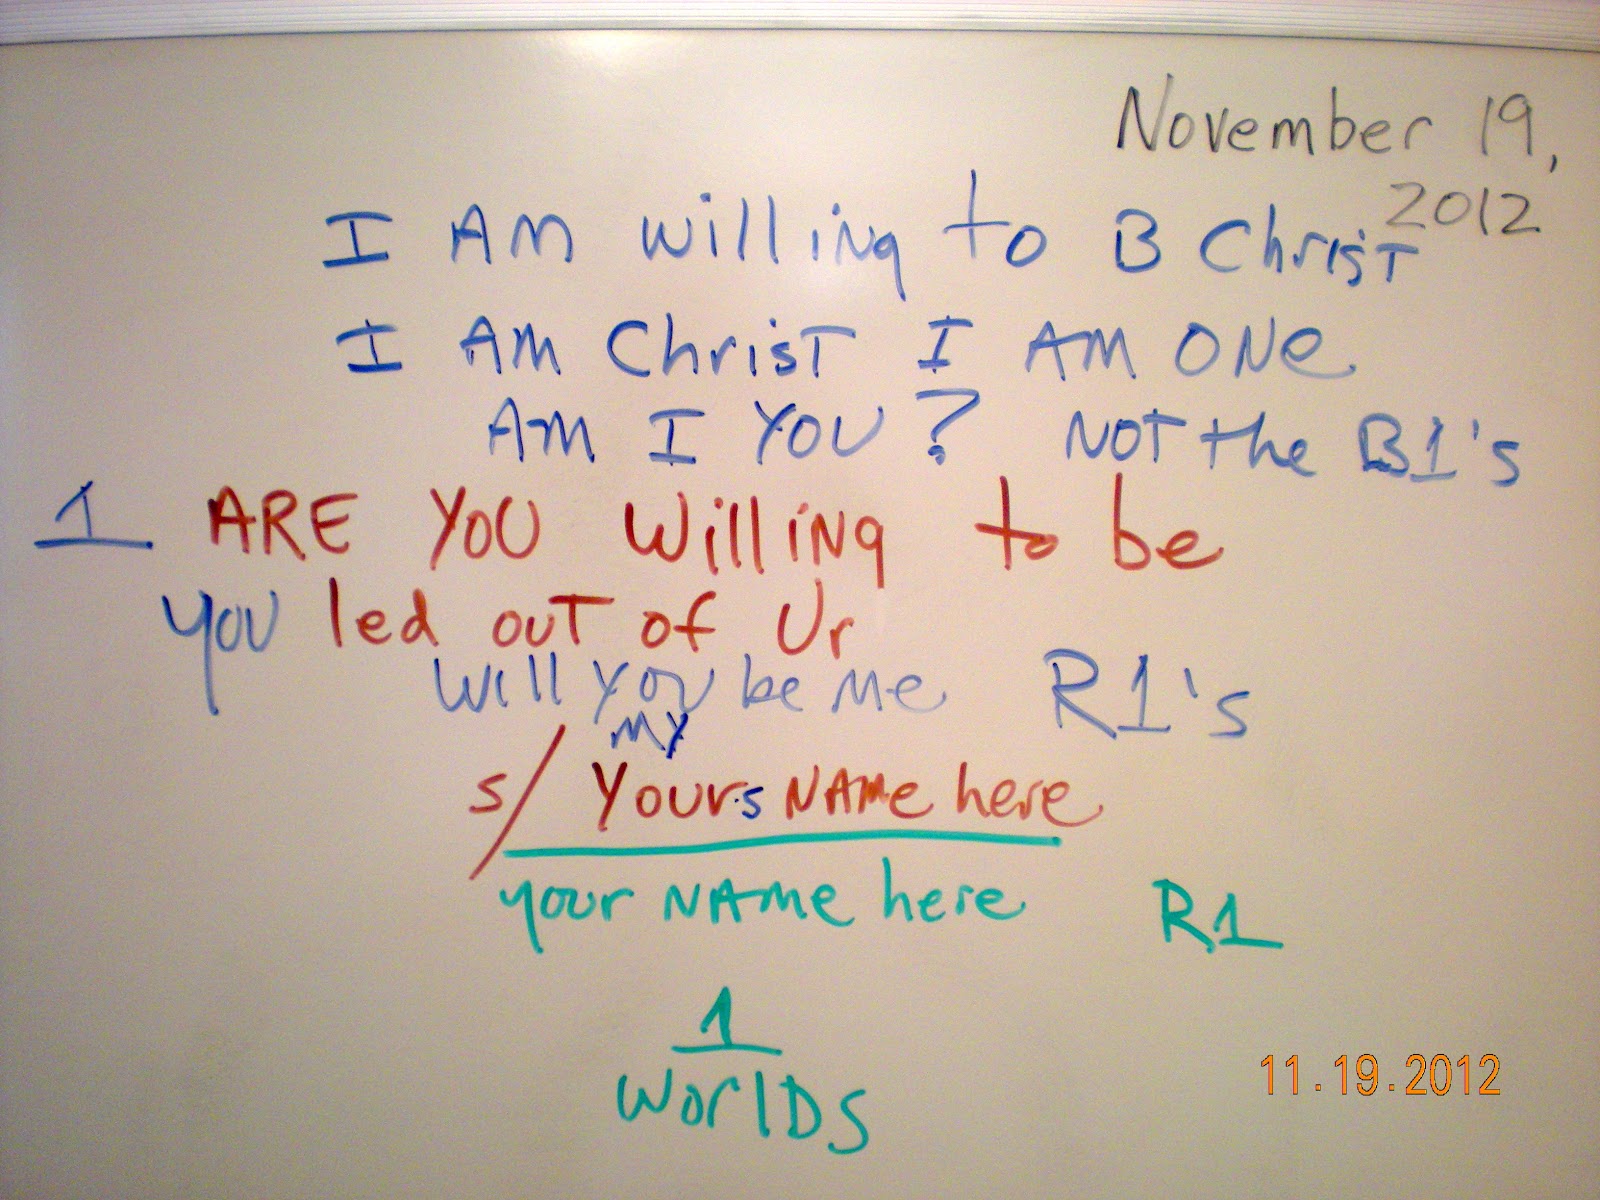 November 19,
2012
I AM willing to B Christ
I AM Christ I AM ONe
AM I YOU ? NOT the B1's
1 ARE YOU Willing to be
you led out of Ur
Will you be me R1's
my
s/ Yours NAMe here
your NAMe here R1
1
WorlDs
11.19.2012